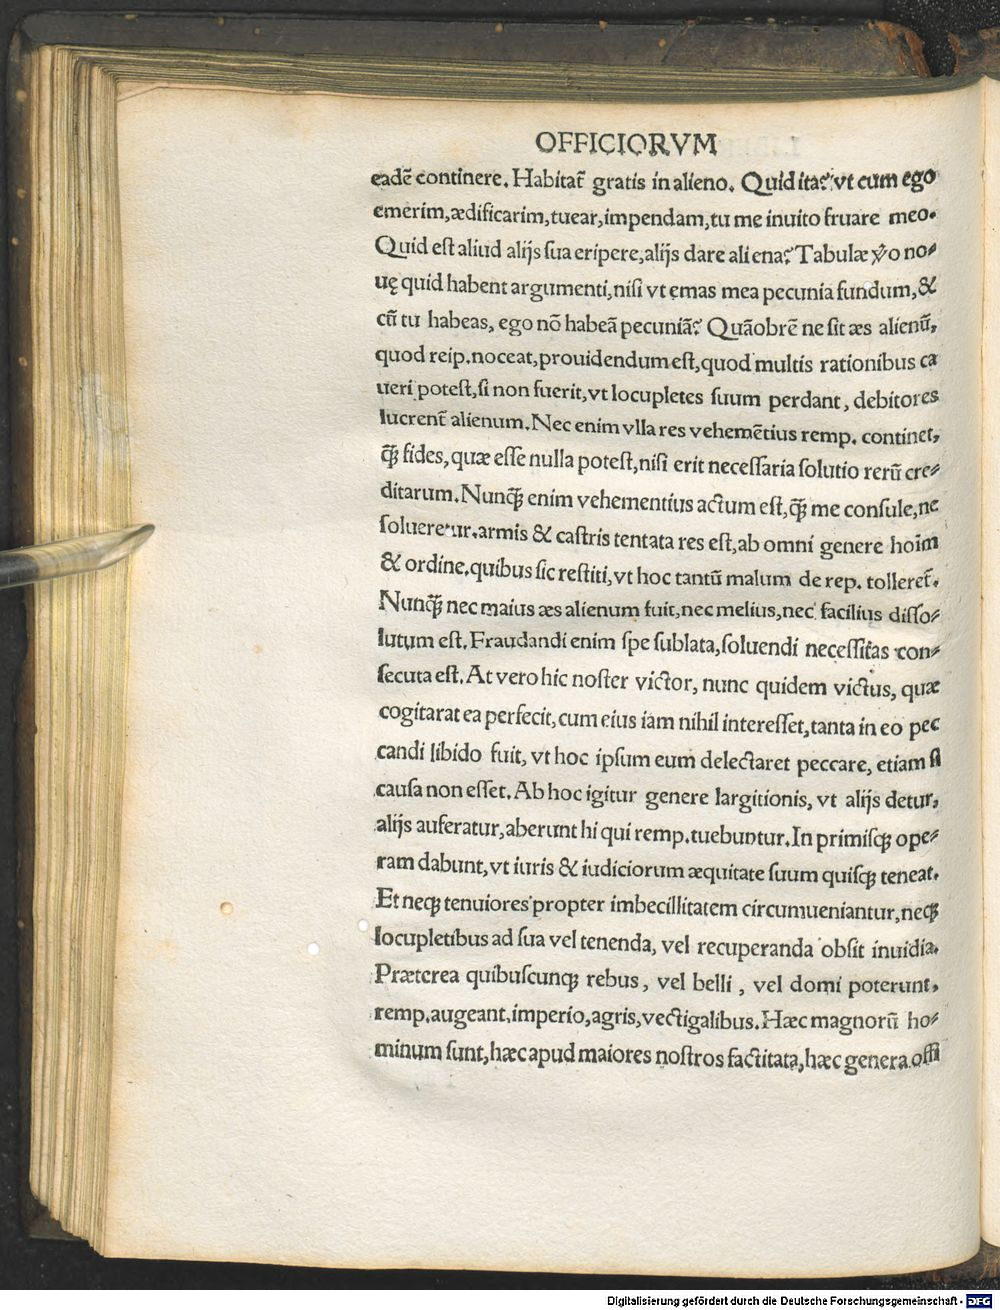 OFFICIORVM
eadē continere. Habitat᷑ gratis in alieno. Quid ita? vt cum ego
emerim, ædificarim, tuear, impendam, tu me inuito fruare meo.
Quid est aliud alijs sua eripere, alijs dare aliena? Tabulæ ꝟo no-
uę quid habent argumenti, nisi vt emas mea pecunia fundum, &
cū tu habeas, ego nō habeā pecuniā? Quāobrē ne sit æs alienū,
quod reip. noceat, prouidendum est, quod multis rationibus ca
ueri potest, si non fuerit, vt locupletes suum perdant, debitores
lucrent᷑ alienum. Nec enim vlla res vehemētius remp. continet,
q̄ꝫ fides, quæ esse nulla potest, nisi erit necessaria solutio rerū cre-
ditarum. Nunq̄ꝫ enim vehementius actum est, q̄ꝫ me consule, ne
solueretur. armis & castris tentata res est, ab omni genere hoīm
& ordine. quibus sic restiti, vt hoc tantū malum de rep. tolleret᷑.
Nunq̄ꝫ nec maius æs alienum fuit, nec melius, nec facilius disso-
lutum est. Fraudandi enim spe sublata, soluendi necessitas con-
secuta est. At vero hic noster victor, nunc quidem victus, quæ
cogitarat ea perfecit, cum eius iam nihil interesset, tanta in eo pec
candi libido fuit, vt hoc ipsum eum delectaret peccare, etiam si
causa non esset. Ab hoc igitur genere largitionis, vt alijs detur,
alijs auferatur, aberunt hi qui remp. tuebuntur. In primisqꝫ ope-
ram dabunt, vt iuris & iudiciorum æquitate suum quisqꝫ teneat.
Et neqꝫ tenuiores propter imbecillitatem circumueniantur, neqꝫ
locupletibus ad sua vel tenenda, vel recuperanda obsit inuidia.
Præterea quibuscunqꝫ rebus, vel belli, vel domi poterunt,
remp. augeant, imperio, agris, vectigalibus. Hæc magnorū ho-
minum sunt, hæc apud maiores nostros factitata, hæc genera offi
Digitalisierung gefördert durch die Deutsche Forschungsgemeinschaft - DFG